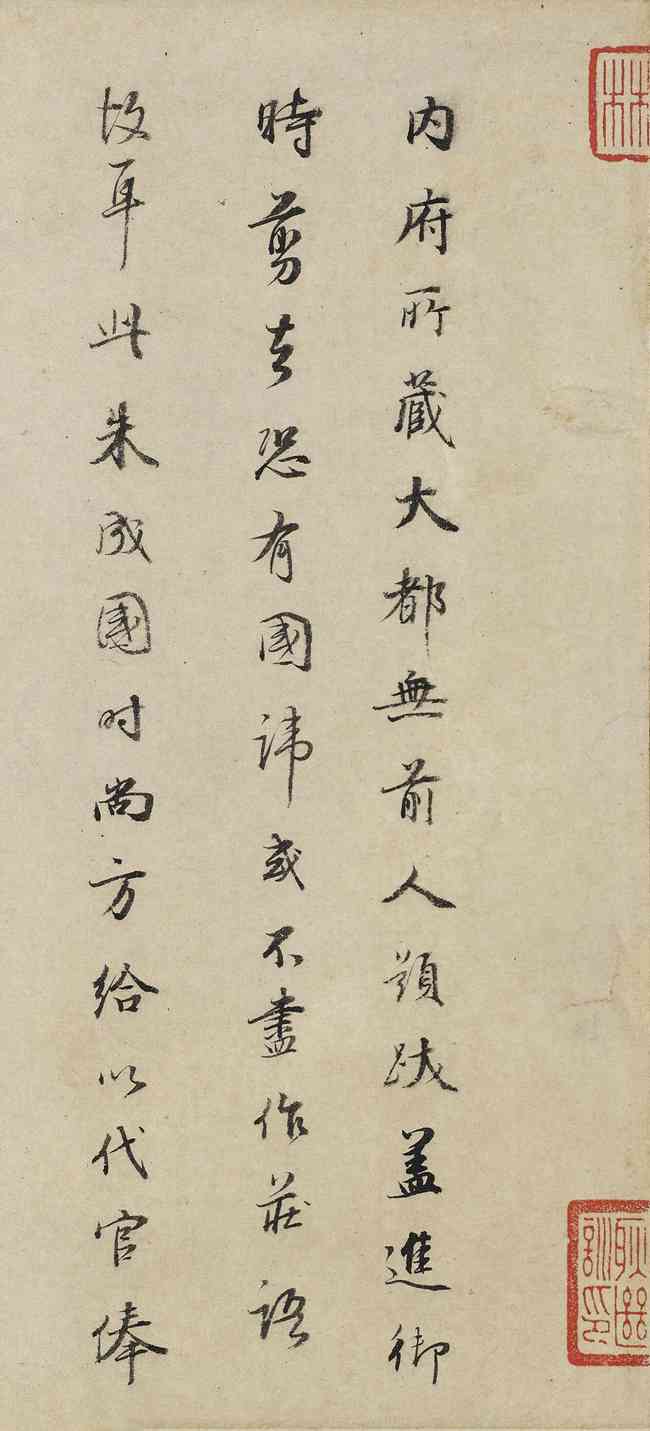 内府所藏大都無前人題跋蓋進御
時剪去恐有國諱或不盡作莊語
故耳此朱成國时尚方給以代官俸